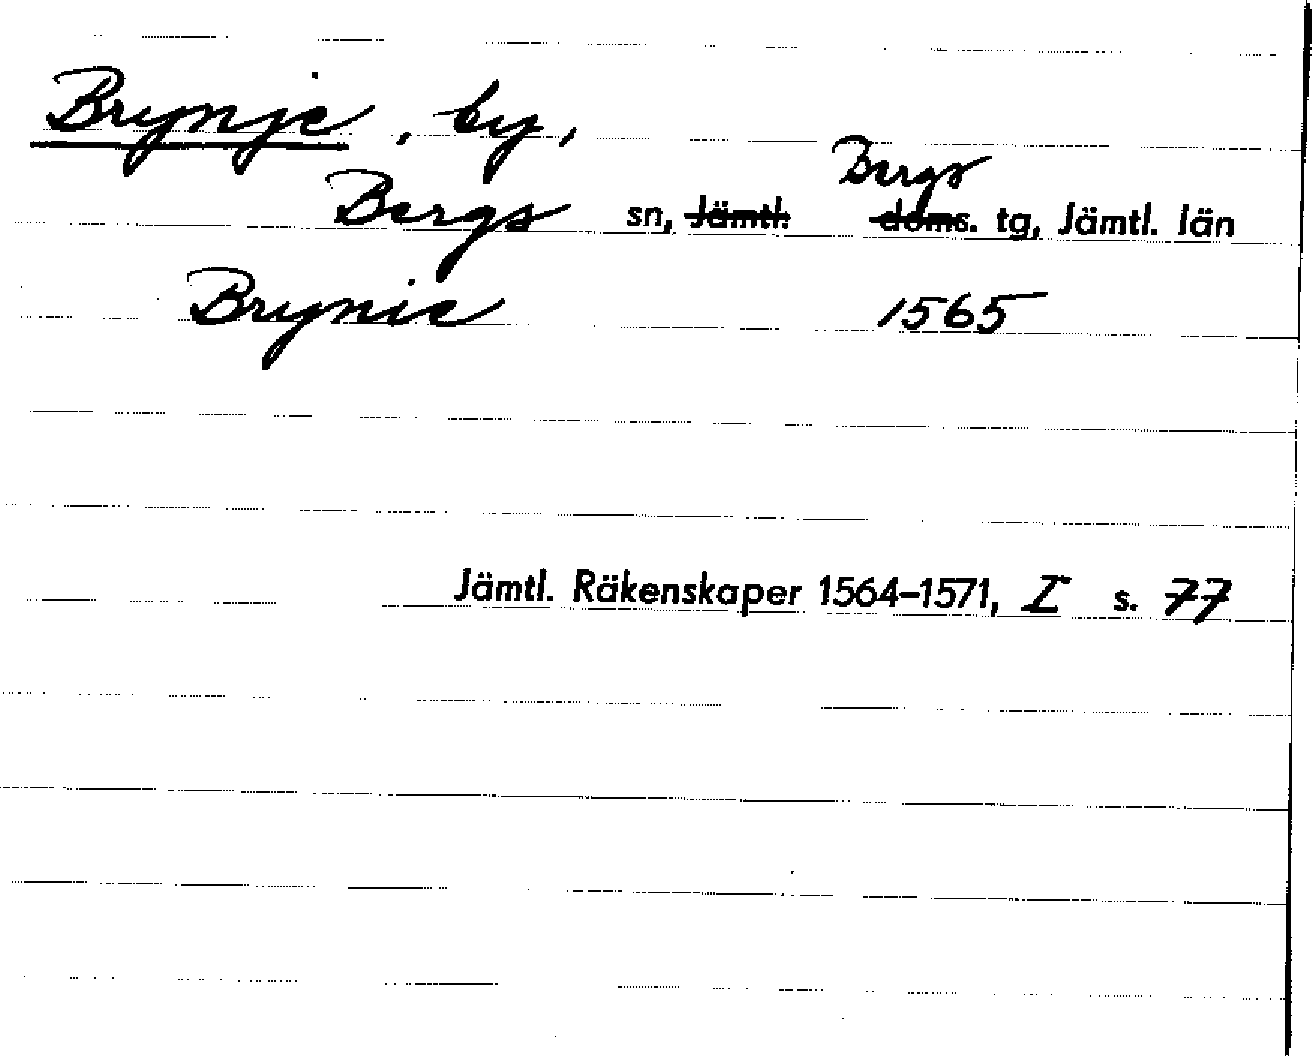 Brynje, by,
Bergs sn, Jämtl. Bergs doms. tg, Jämtl. län
Brynie 1565
Jämtl. Räkenskaper 1564–1571, I s. 77